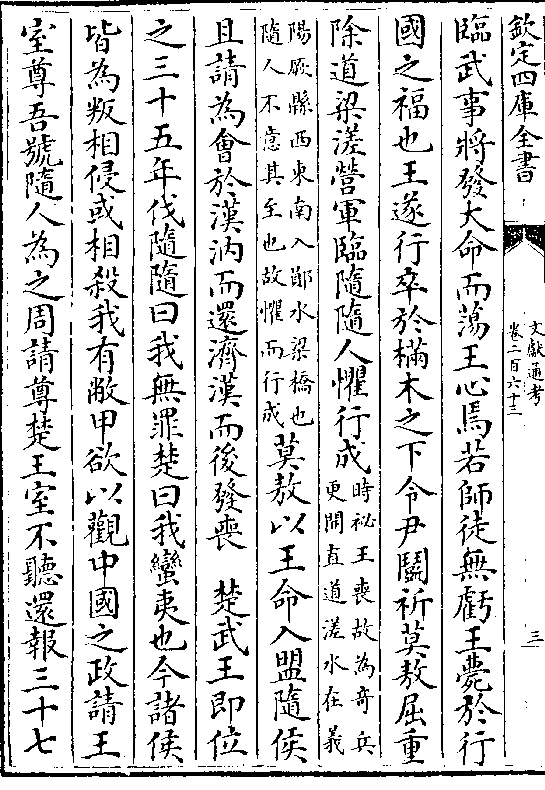 欽定四庫全書
文獻通考
卷二百六十三
三
臨武事將發大命而蕩王心焉若師徒無虧王薨於行
國之福也王遂行卒於樠木之下令尹鬭祈莫敖屈重
除道梁溠營軍臨隨隨人懼行成時祕王喪故為奇兵
更開直道溠水在義
陽厥縣西東南入鄖水梁橋也
隨人不意其至也故懼而行成莫敖以王命入盟隨侯
且請為會於漢汭而還濟漢而後發喪　楚武王即位
之三十五年伐隨隨曰我無罪楚曰我蠻夷也今諸侯
皆為叛相侵或相殺我有敝甲欲以觀中國之政請王
室尊吾號隨人為之周請尊楚王室不聽還報三十七